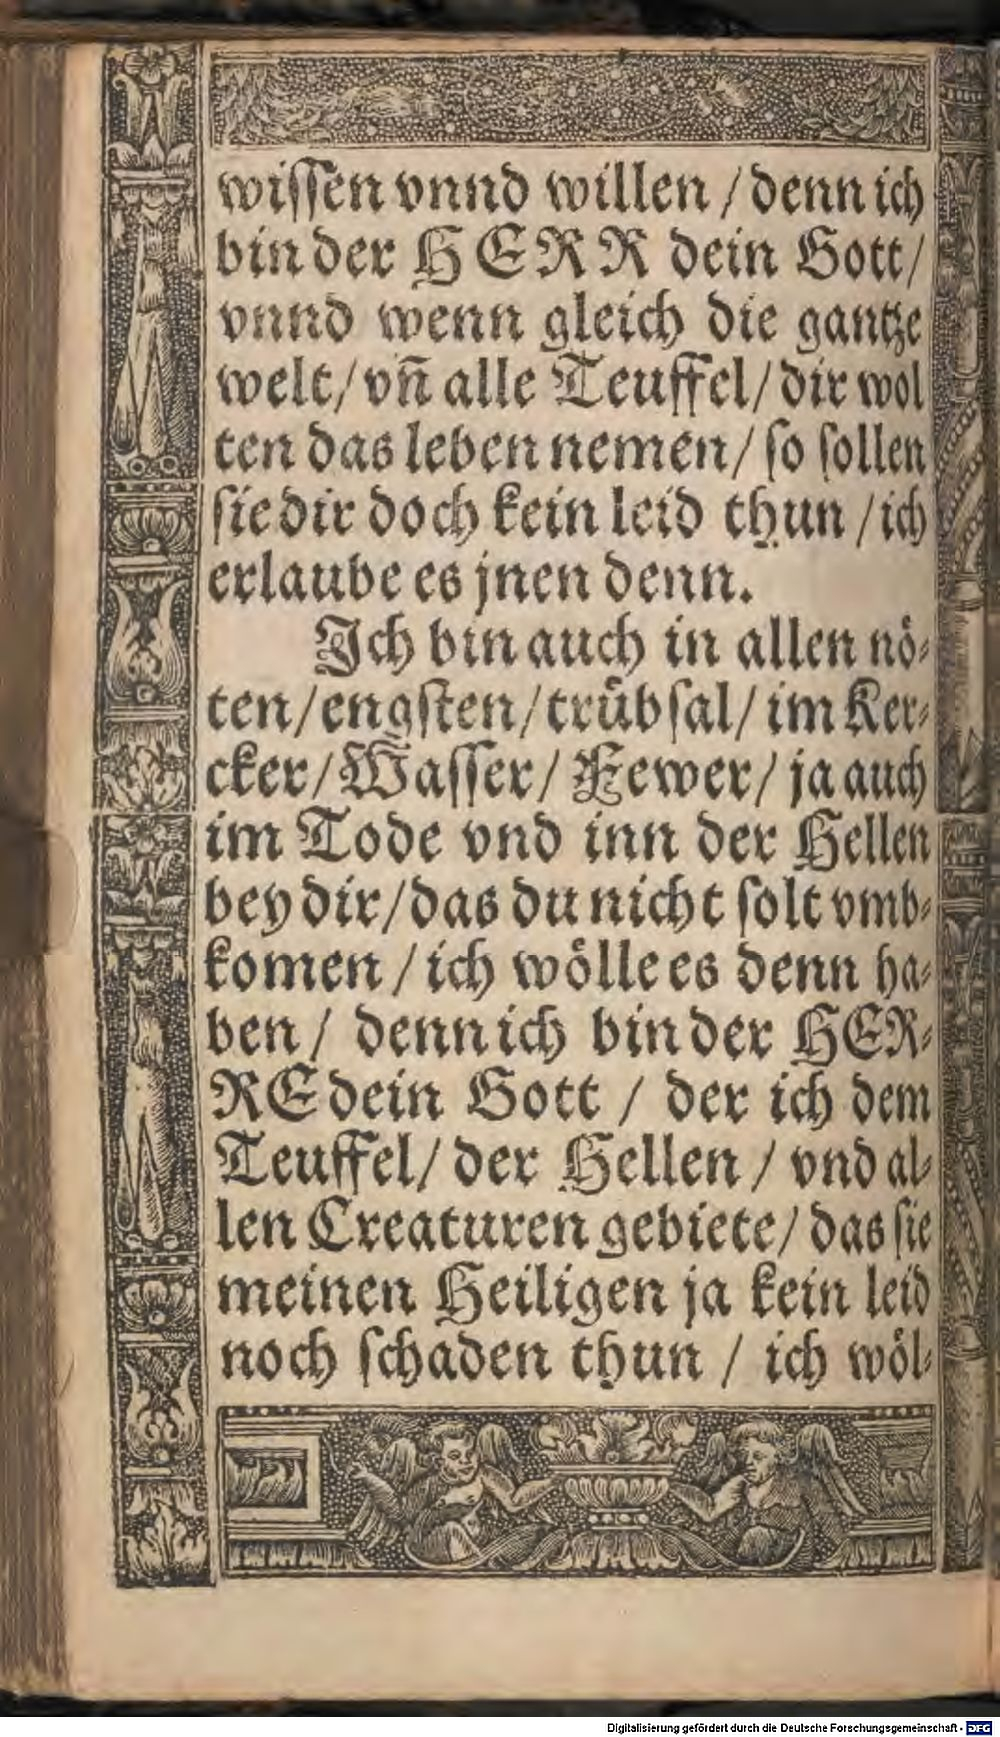 wiſſen vnnd willen / denn ich
bin der HERR dein Gott /
vnnd wenn gleich die gantze
welt / vn̄ alle Teuffel / dir wol
ten das leben nemen / ſo ſollen
ſie dir doch kein leid thun / ich
erlaube es jnen denn.
Ich bin auch in allen nö⸗
ten / engſten / trübſal / im Ker⸗
cker / Waſſer / Fewer / ja auch
im Tode vnd inn der Hellen
bey dir / das du nicht ſolt vmb⸗
komen / ich wölle es denn ha⸗
ben / denn ich bin der HER⸗
RE dein Gott / der ich dem
Teuffel / der Hellen / vnd al⸗
len Creaturen gebiete / das ſie
meinen Heiligen ja kein leid
noch ſchaden thun / ich wöl⸗
Digitalisierung gefördert durch die Deutsche Forschungsgemeinschaft - DFG